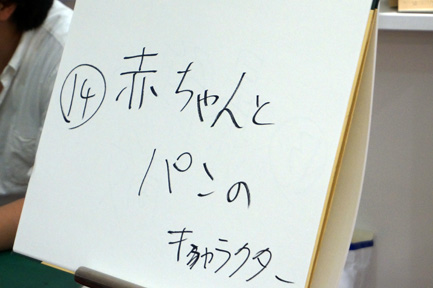 ⑭ 赤ちゃんと
パンの
キャラクター